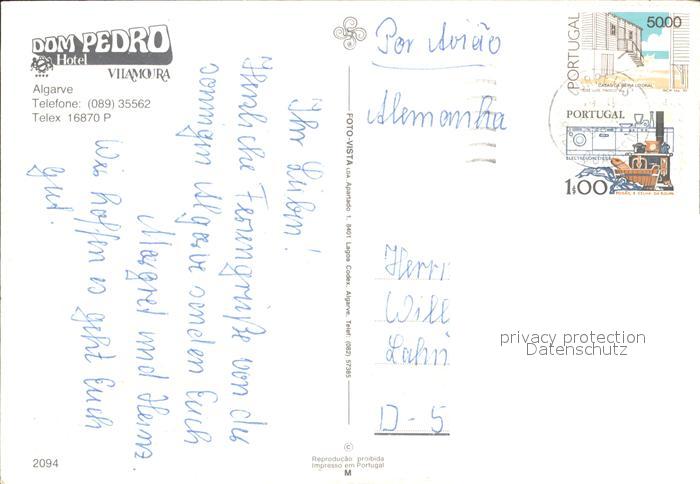 DOM PEDRO
Hotel
VILAMOURA
Algarve
Telefone: (089) 35562
Telex 16870 P
Ihr Lieben!
Herzliche Feriengrüße von der
sonnigen Algarve senden Euch
Margret und Heinz
Wir hoffen es geht Euch
gut!
2094
FOTO-VISTA LDA. Apartado 1, 8401 Lagoa Codex, Algarve, Telef. (082) 57365
©
Reprodução proibida
Impresso em Portugal
M
Por Avião
Alemanha
Herrn
Will
D-5
PORTUGAL
5000
CASAS DA BEIRA LITORAL
PORTUGAL
1$00
privacy protection
Datenschutz